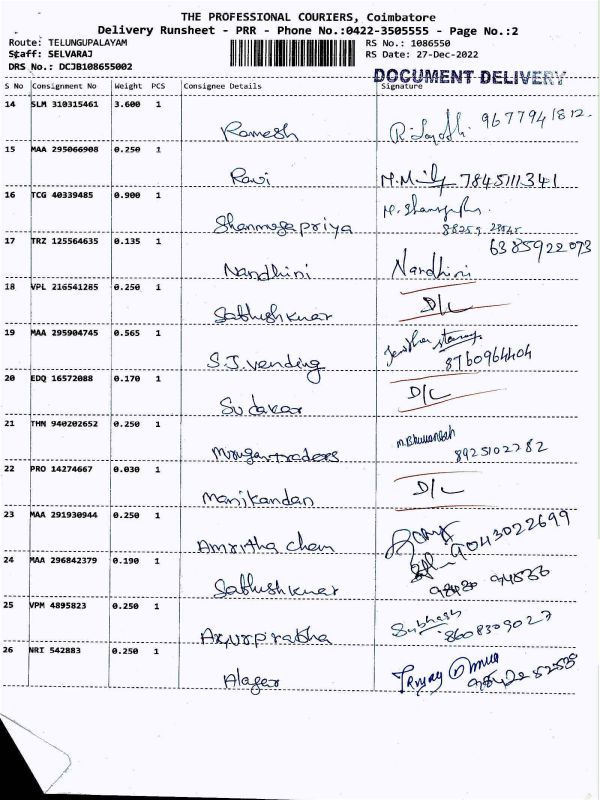 THE PROFESSIONAL COURIERS, Coimbatore
Delivery Runsheet - PRR - Phone No.:0422-3505555 - Page No.:2
Route: TELUNGUPALAYAM RS No.: 1086550
Staff: SELVARAJ RS Date: 27-Dec-2022
DRS No.: DCJB108655002 DOCUMENT DELIVERY
S No Consignment No Weight PCS Consignee Details Signature
14 SLM 310315461 3.600 1
Ramesh 9677941812.
15 MAA 295066908 0.250 1
Ravi 7845111341
16 TCG 40339485 0.900 1
Shanmugapriya
17 TRZ 125564635 0.135 1 6385922073
Nandhini Nandhini
18 VPL 216541285 0.250 1
Sabhishkumar D/L
19 MAA 295904745 0.565 1
S.J.vending 8760964404
20 EDQ 16572088 0.170 1
Sudakar D/L
21 THN 940202652 0.250 1
Murugantraders 8925102282
22 PRO 14274667 0.030 1
Manikandan D/L
23 MAA 291930944 0.250 1
Amritha chem 9043022699
24 MAA 296842379 0.190 1
Sabhishkumar
25 VPM 4895823 0.250 1 Subhash
8608309027
26 NRI 542883 0.250 1
Alager